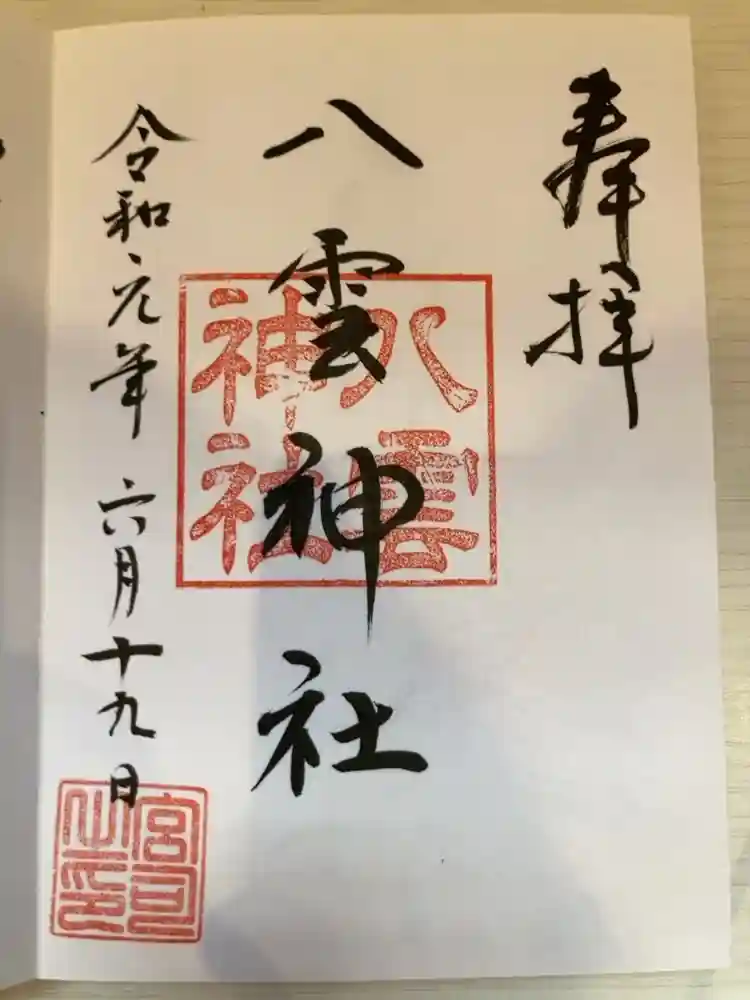 奉拝
八雲神社
八雲
神社
令和元年 六月十九日
宮司
之印